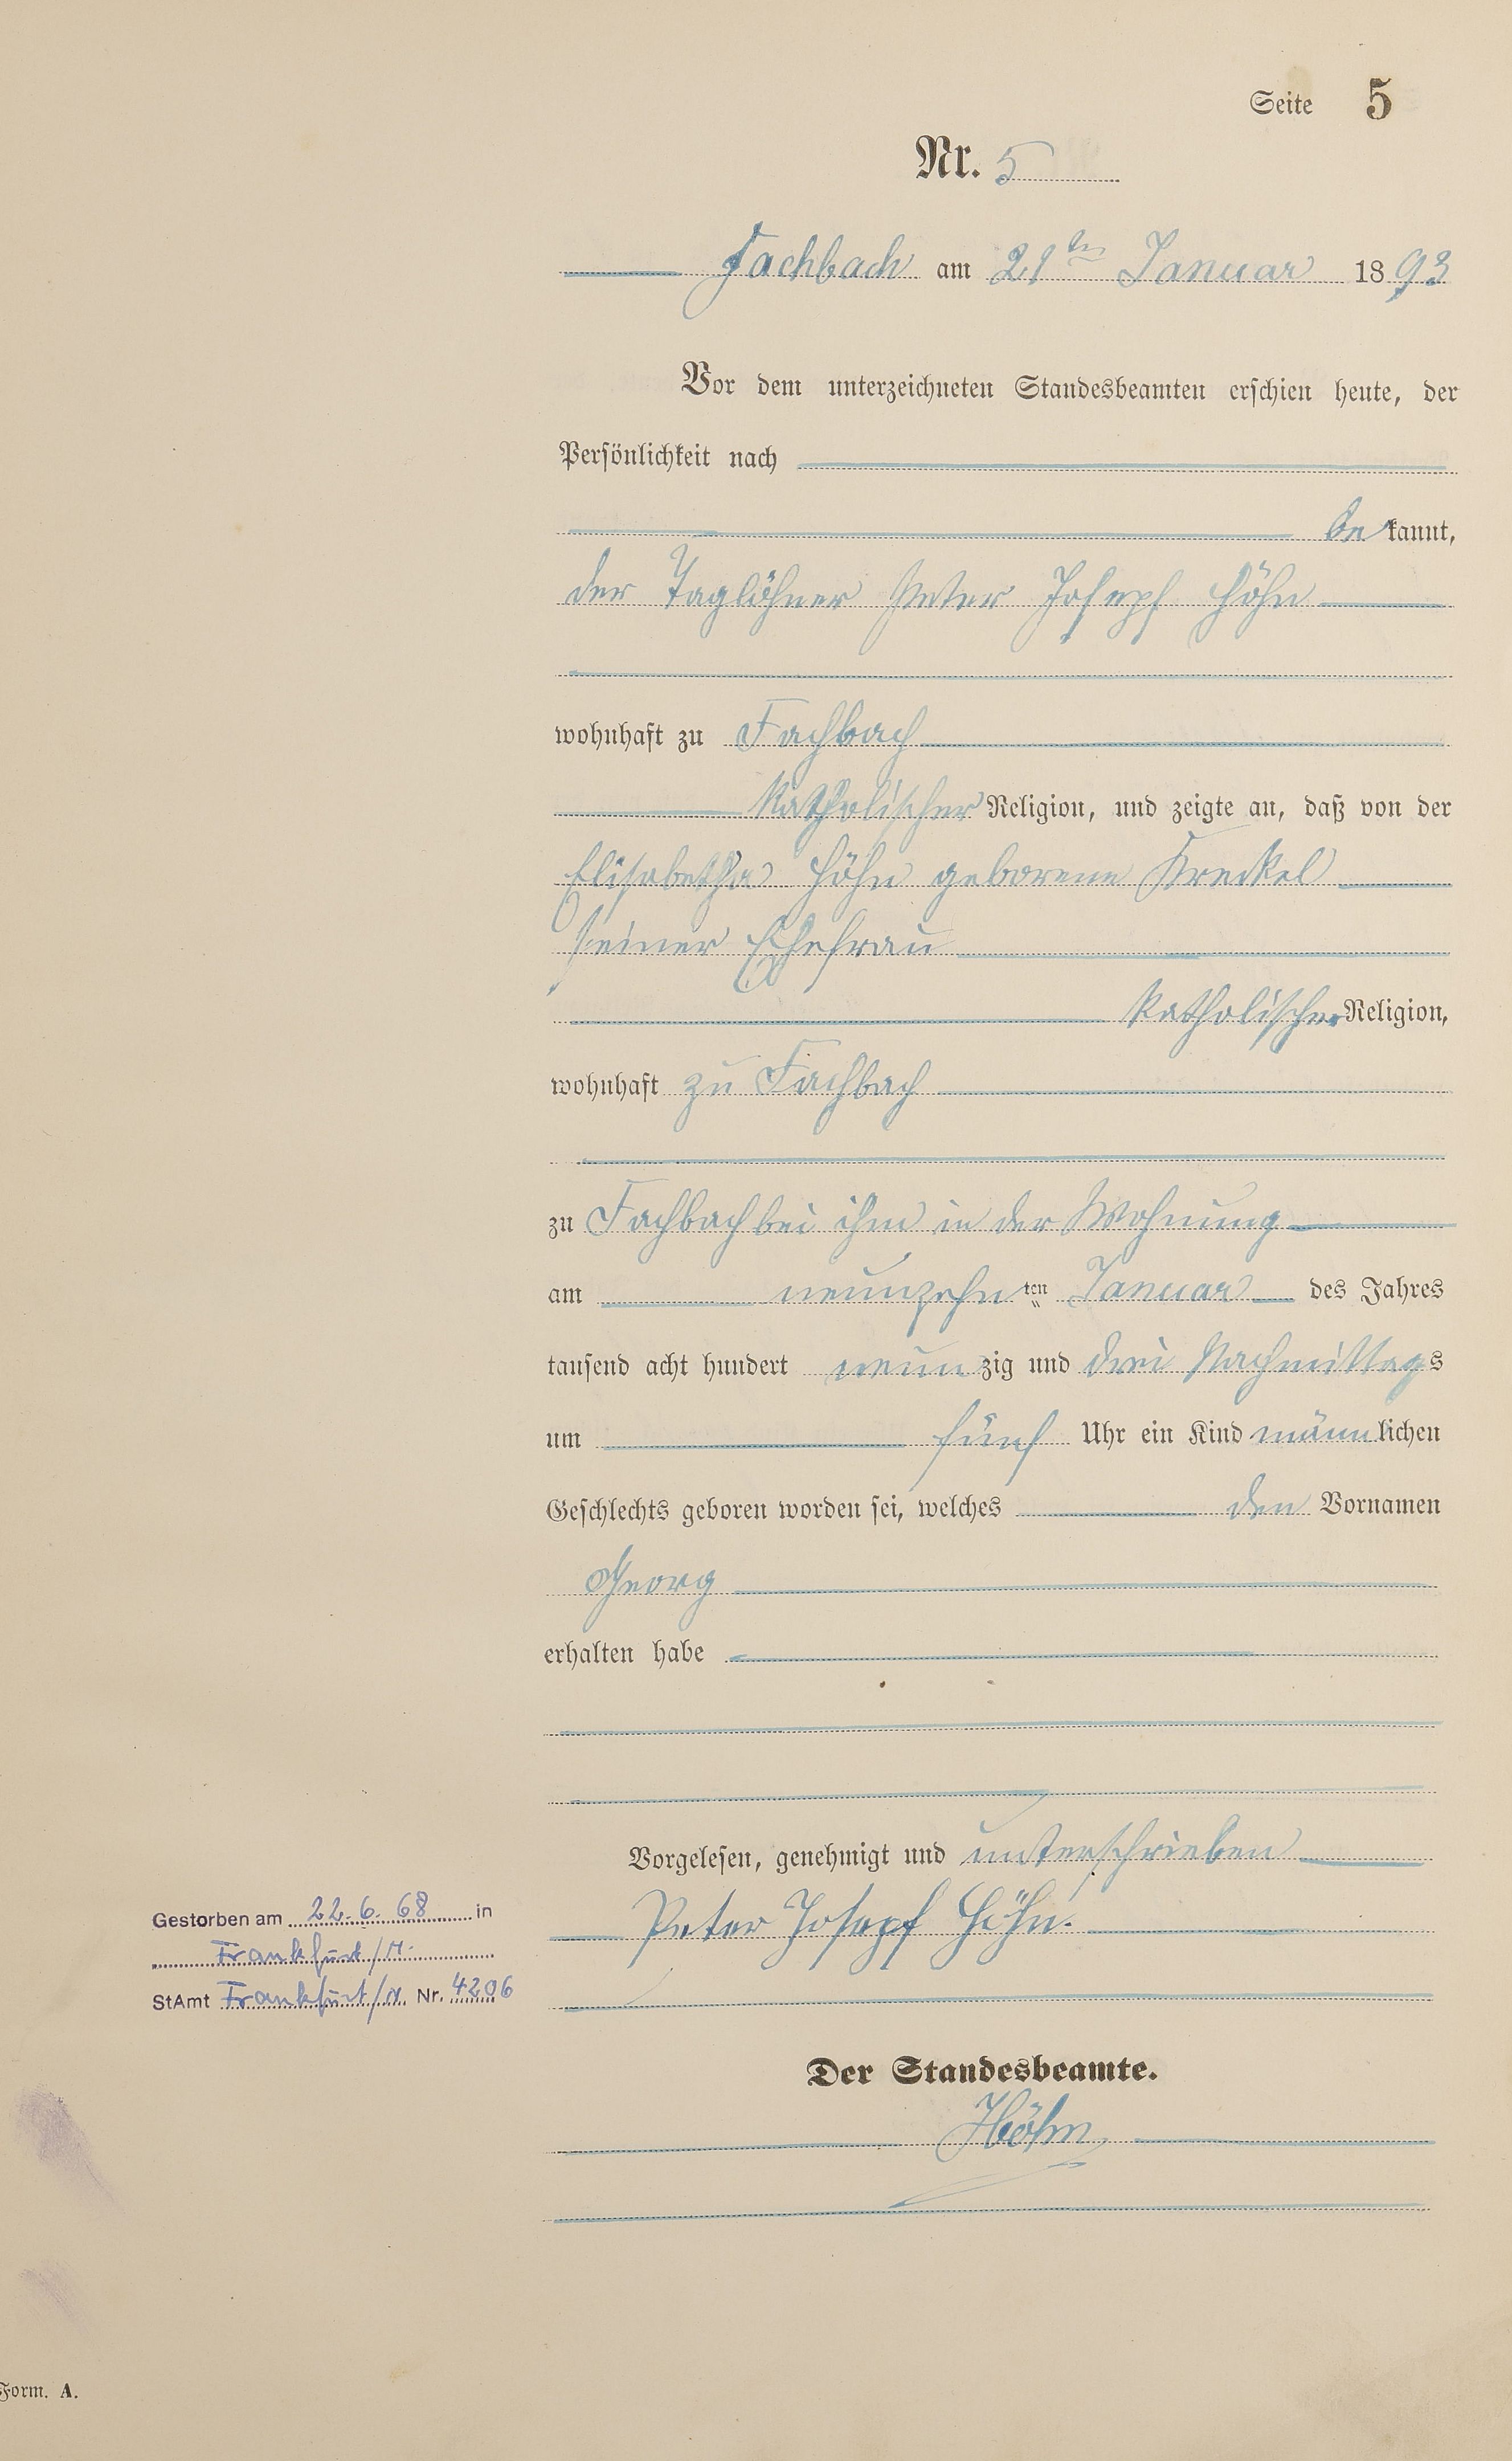 Seite 5
Nr. 5
Fachbach am 21ten Januar 1893
Vor dem unterzeichneten Standesbeamten erschien heute, der
Persönlichkeit nach
bekannt,
der Taglöhner Peter Josepf Höhn
wohnhaft zu Fachbach
katholischer Religion, und zeigte an, daß von der
Elisabetha Höhn geborene Kreckel
seiner Ehefrau
katholischer Religion,
wohnhaft zu Fachbach
zu Fachbach bei ihm in der Wohnung
am neunzehnten Januar des Jahres
tausend acht hundert neunzig und drei Nachmittags
um fünf Uhr ein Kind männlichen
Geschlechts geboren worden sei, welches den Vornamen
Georg
erhalten habe
Vorgelesen, genehmigt und unterschrieben
Peter Josepf Höhn.
Der Standesbeamte.
Höhn
Gestorben am 22.6.68 in
Frankfurt/M.
StAmt Frankfurt/M. Nr. 4206
Form. A.